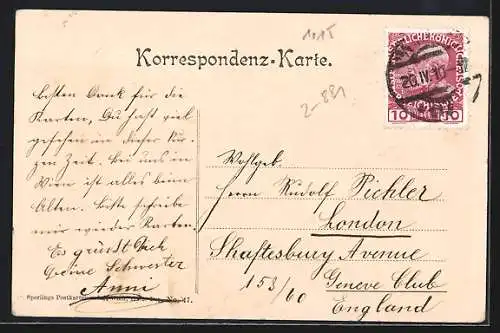 1115
Korrespondenz-Karte.
20 IV 10
10 10
2-891
besten Dank für die
Karten, Du hast viel
gesehen in dieser kur-
zen Zeit. Bei uns in
Wien ist alles beim
Alten. Bitte schreibe
mir wieder Karten.
Es grüsst Dich
Deine Schwester
Anni
Wohlgeb.
Herrn Rudolf Pichler
London
Shaftesbury Avenue
153/60 Geneve Club
England
Sperlings Postkarten No. 47.